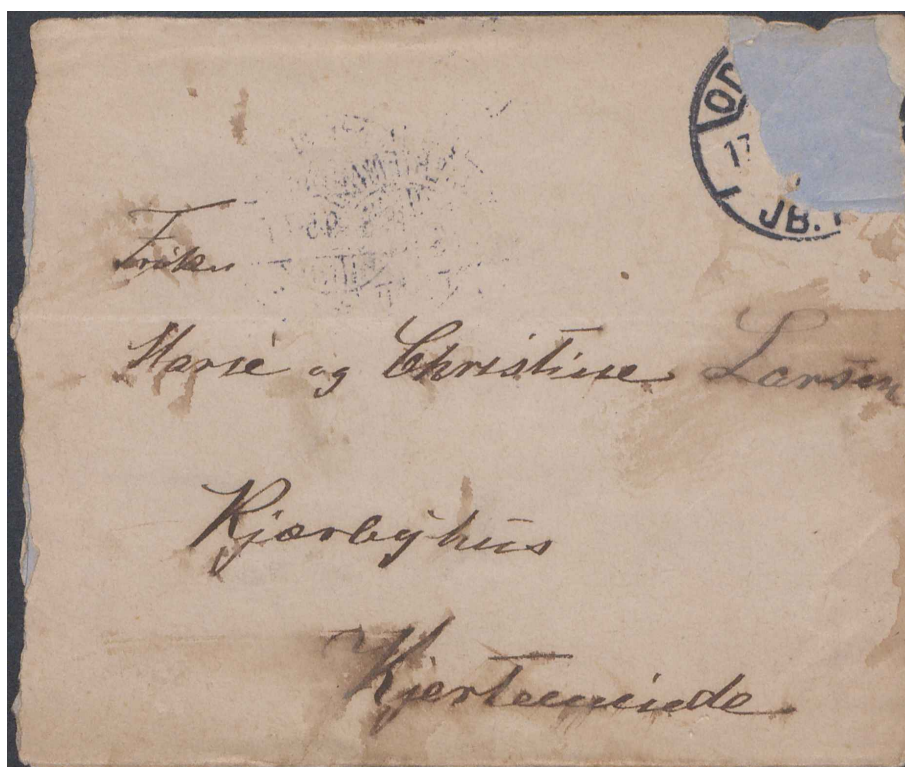 OD
17
JB.
Frøkn
Marie og Christine Larsen
Kjærbyhus
Kjerteminde